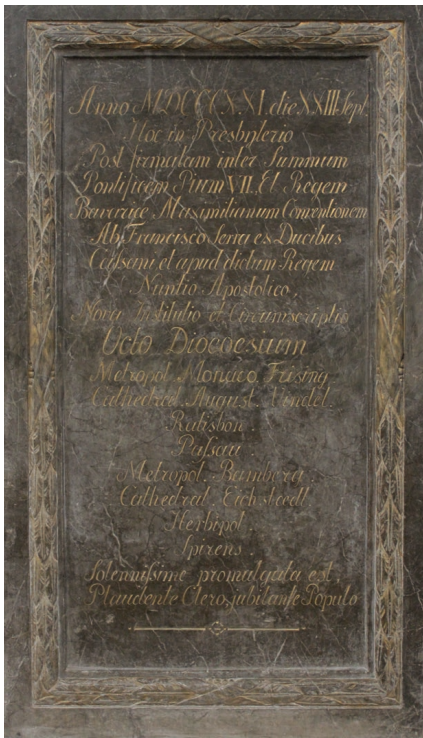 Anno MDCCCXXI. die XXIII. Sept.
Hoc in Presbyterio
Post firmatam inter Summum
Pontificem Pium VII. Et Regem
Bavariae Maximilianum Conventionem
Ab Francisco Serra es Ducibus
Caſsani et apud dictum Regem
Nuntio Apostolico,
Nova Institutio et Circumscriptio
Octo Dioecesium
Metropol. Monaco. Frising.
Cathedral. August. Vindel.
Ratisbon.
Paſsau.
Metropol. Bamberg.
Cathedral. Eichstaedt.
Herbipol.
Spirens.
Solenniſsime promulgata est,
Plaudente Clero, jubilante Populo